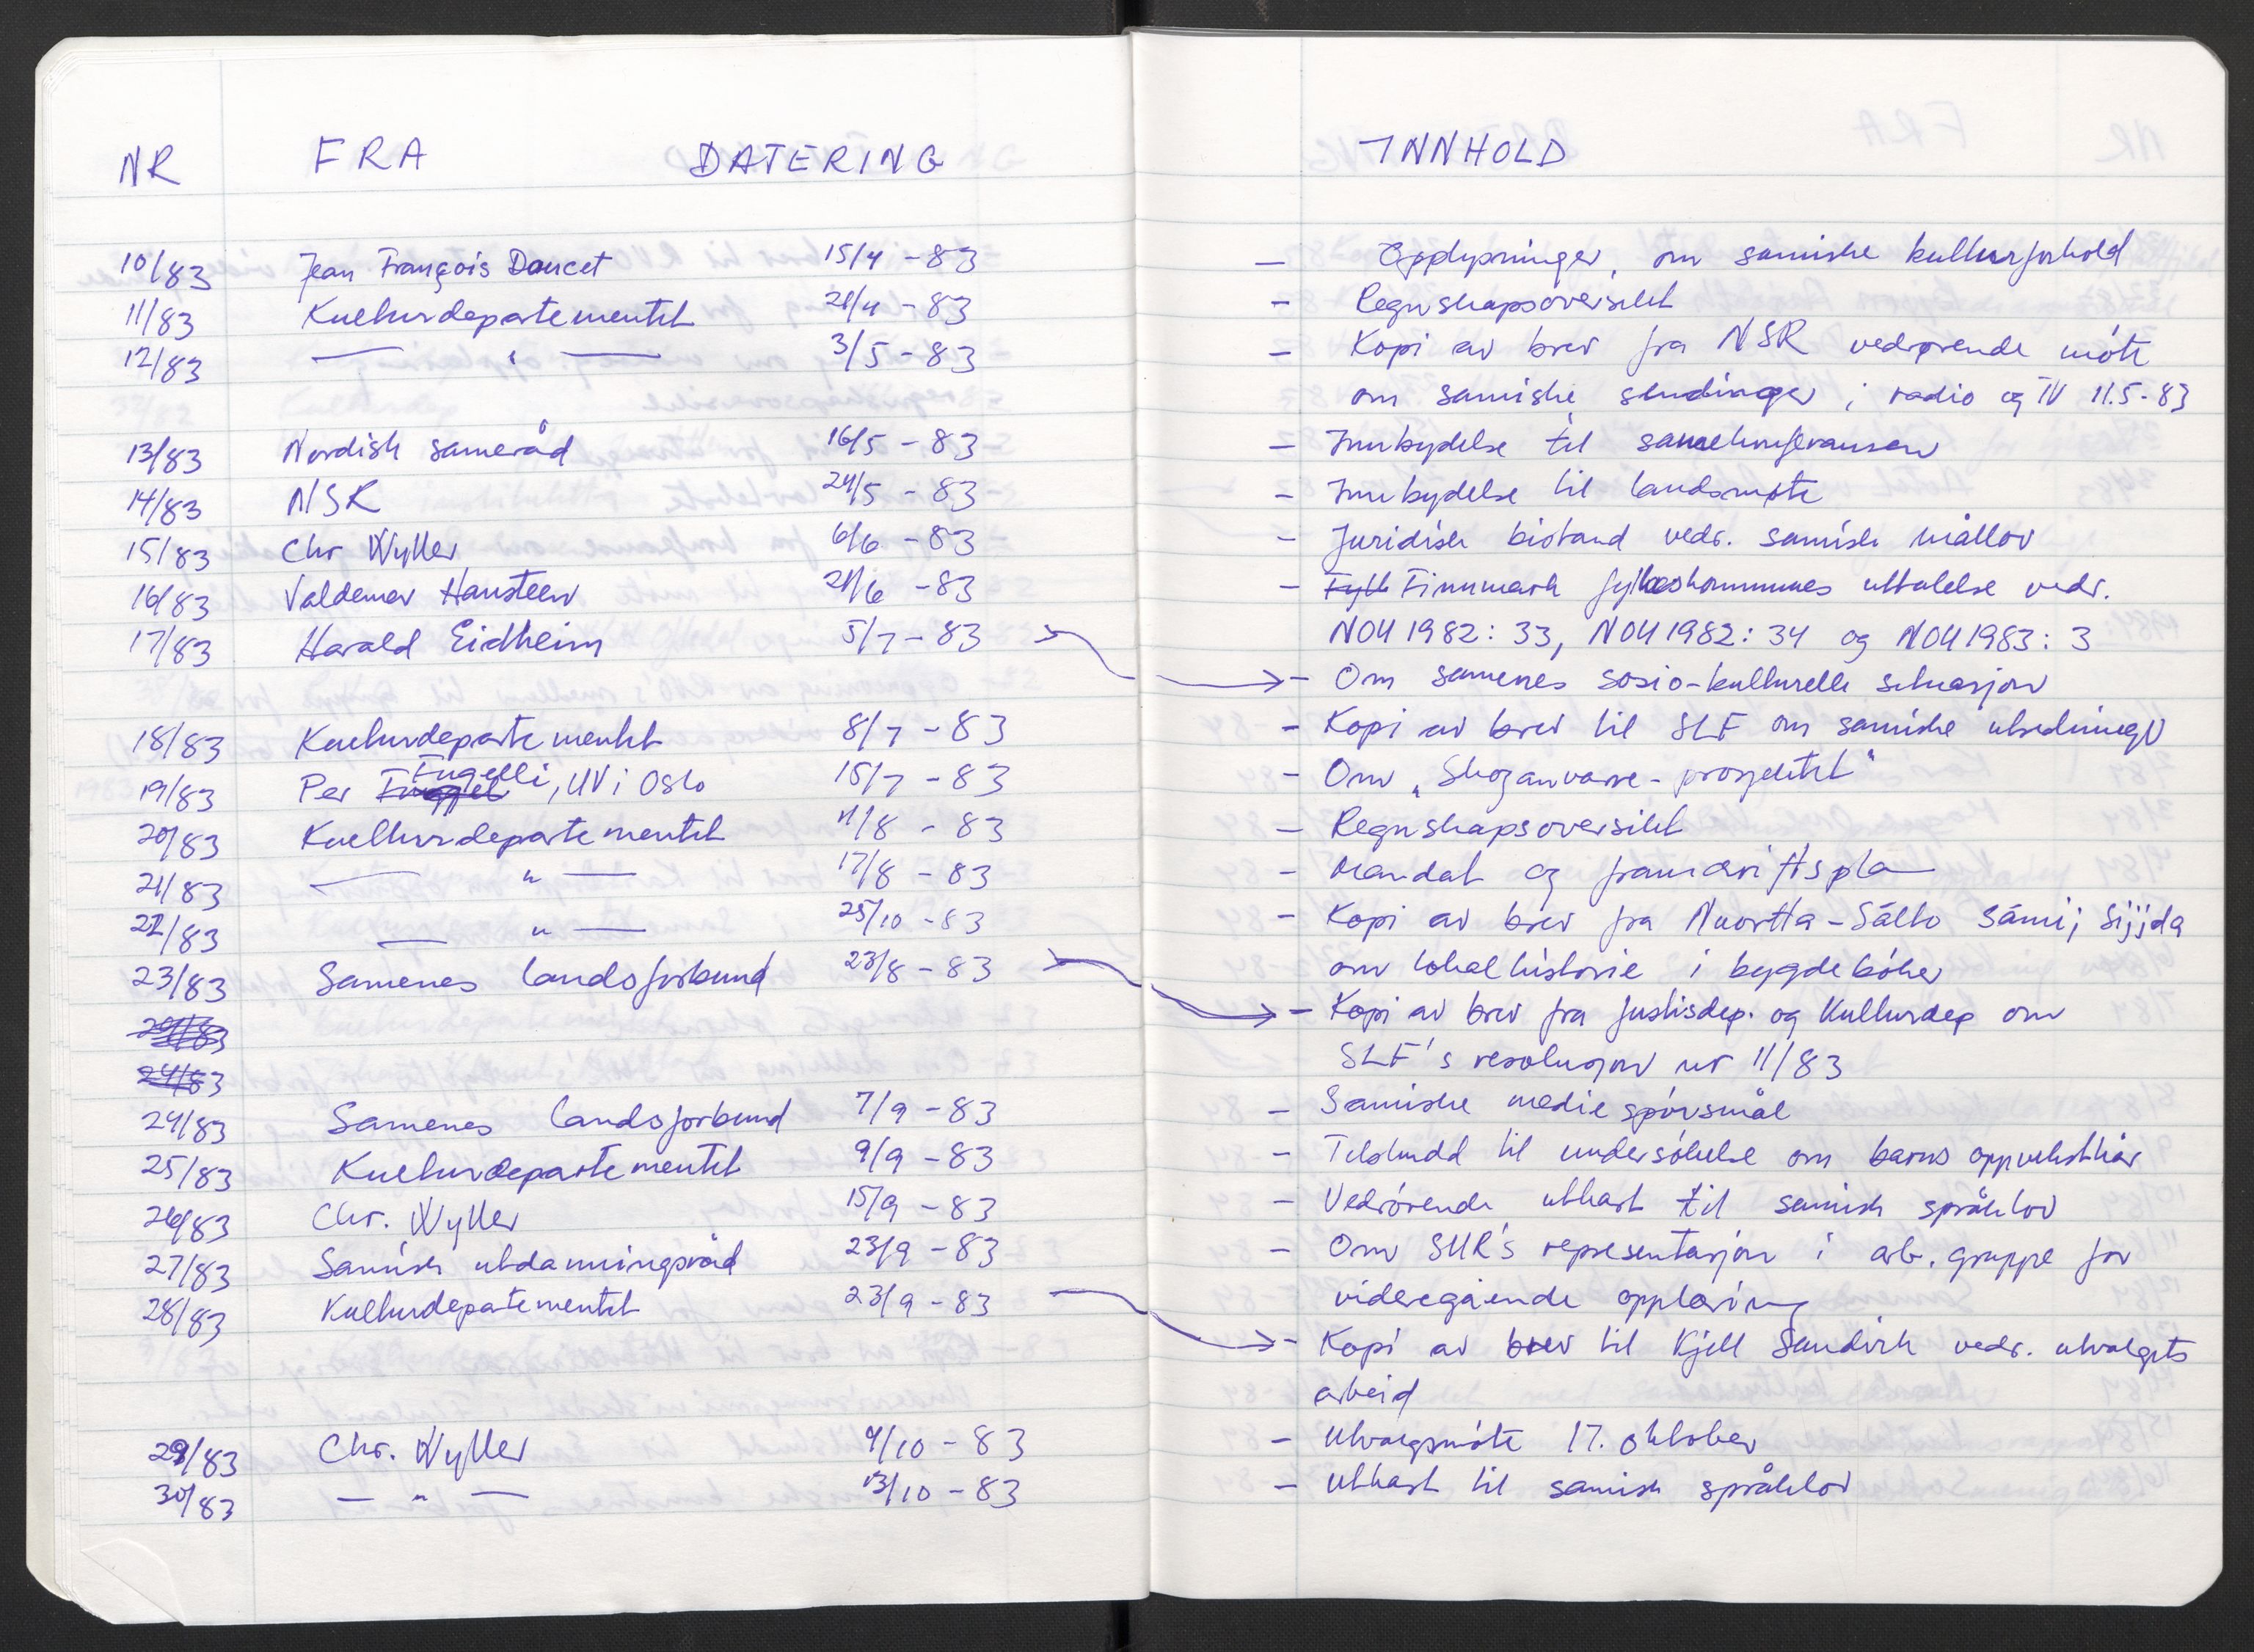 NR FRA DATERING INNHOLD
10/83 Jean François Doucet 15/4 - 83 — Opplysninger, om samiske kulturforhold
11/83 Kulturdepartementet 21/4 - 83 – Regnskapsoversikt
12/83 — " — 3/5 - 83 – Kopi av brev fra NSR vedrørende møte
om samiske sendinger i radio og TV 11.5-83
13/83 Nordisk sameråd 16/5 - 83 – Innbydelse til samekonferansen
14/83 NSR 24/5 - 83 – Innbydelse til landsmøte
15/83 Chr Wyller 6/6 - 83 – Juridisk bistand vedr. samisk mållov
16/83 Valdemar Hansteen 21/6 - 83 – Fylk Finnmark fylkeskommunes uttalelse vedr.
NOU 1982: 33, NOU 1982: 34 og NOU 1983: 3
17/83 Harald Eidheim 5/7 - 83 → – Om samenes sosio-kulturelle situasjon
18/83 Kulturdepartementet 8/7 - 83 – Kopi av brev til SLF om samiske utredninger
19/83 Per Fugelli, UV i Oslo 15/7 - 83 – Om "Skoganvarre-prosjektet"
20/83 Kulturdepartementet 11/8 - 83 – Regnskapsoversikt
21/83 — " — 17/8 - 83 – Mandat og framdriftsplan
22/83 — " — 25/10 - 83 – Kopi av brev fra Nuortta-Sálto Sámij Sijjda
om lokalhistorie i bygdebøker
23/83 Samenes landsforbund 23/8 - 83 → – Kopi av brev fra Justisdep. og Kulturdep om
24/83
SLF's resolusjon nr 11/83
24/83
24/83 Samenes landsforbund 7/9 - 83 – Samiske mediespørsmål
25/83 Kulturdepartementet 9/9 - 83 – Tilskudd til undersøkelse om barns oppvekstkår
26/83 Chr. Wyller 15/9 - 83 – Vedrørende utkast til samisk språklov
27/83 Samisk utdanningsråd 23/9 - 83 – Om SUR's representasjon i arb. gruppe for
videregående opplæring
28/83 Kulturdepatementet 23/9 - 83 → – Kopi av brev til Kjell Sandvik vedr. utvalgets
arbeid
29/83 Chr. Wyller 4/10 - 83 – Utvalgsmøte 17. oktober
30/83 — " — 13/10 - 83 – Utkast til samisk språklov